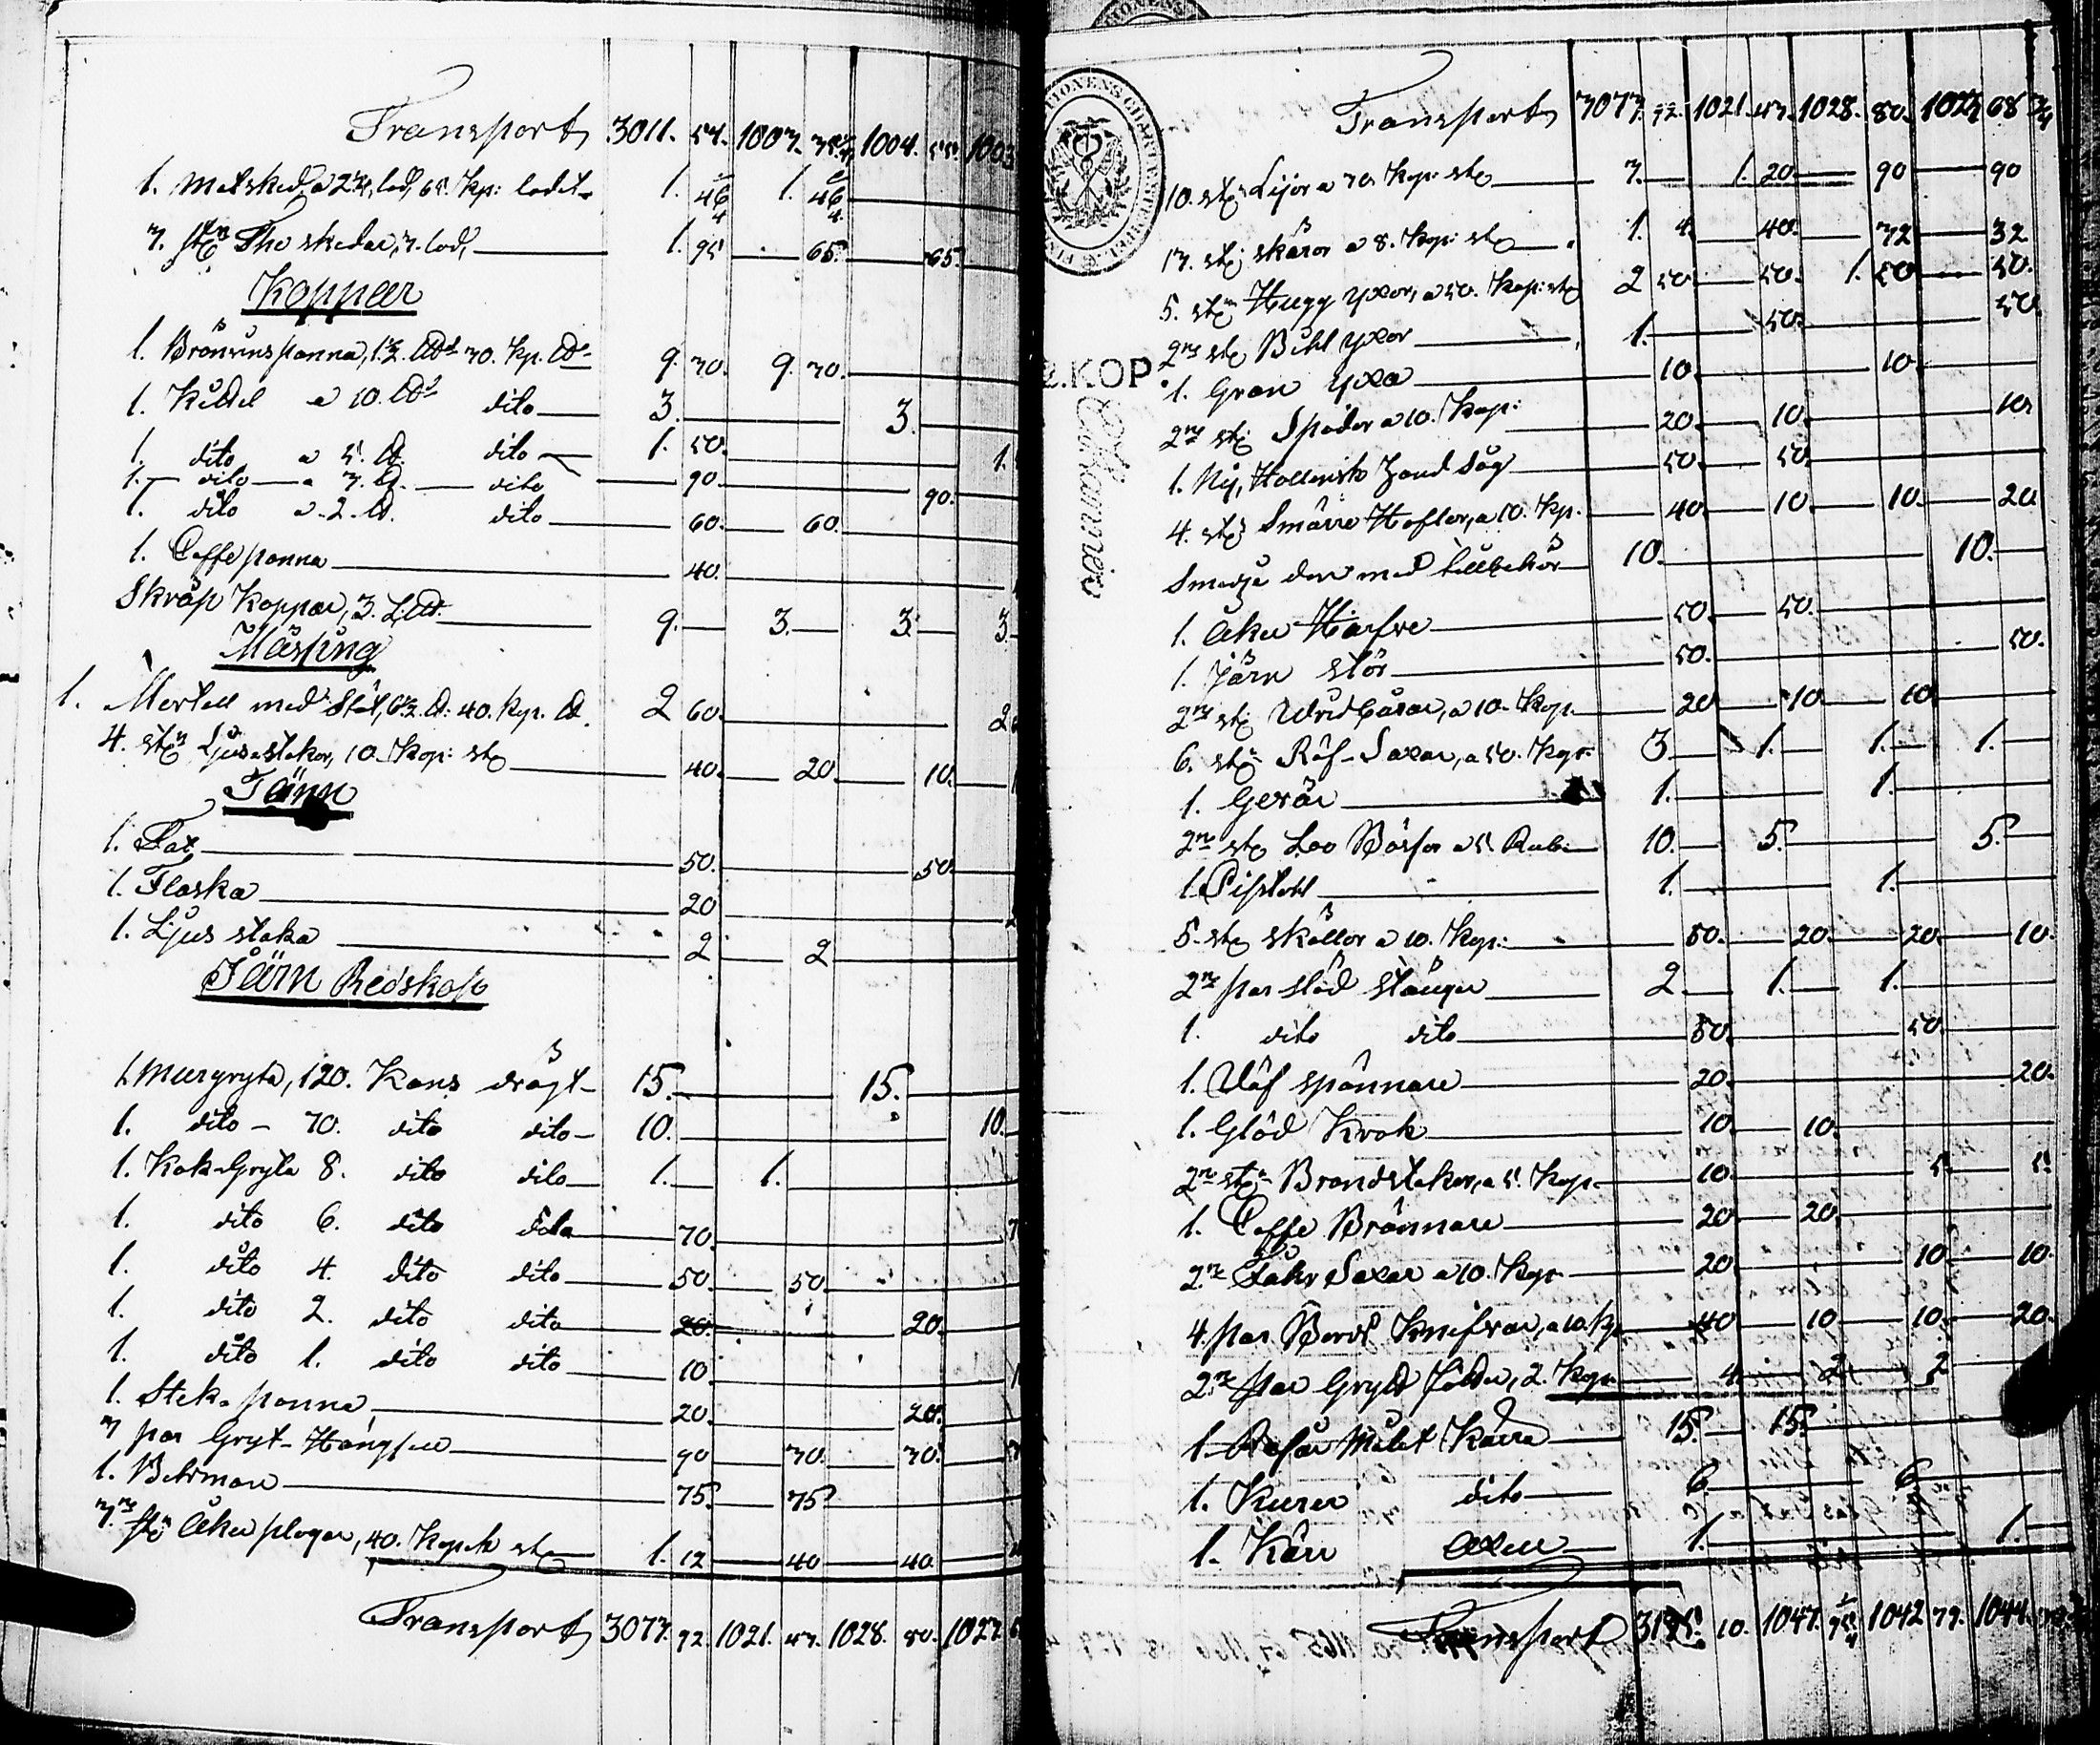 Transport 3011. 54. 1003. 1004. 55. 1003
1. Matsked, a 2¼ lod, 65. Kp: lodet 1. 46 1. 46
3. st. The skedar, 3. lod, 1. 95 65. 65.
Koppar
1. Brönvins panna, 30. Kp. 9. 30. 9. 30.
1. Kittel a 10. dito 3. 3.
1. dito a 5. dito 1. 50. 1.
1. dito a 3. dito 90 90.
1. dito a 2. dito 60. 60.
1. Caffe panna 40.
Skråp Koppar, 3. 9. 3. 3. 3.
Mässing
1. Mortell med Stöt, 40. Kop. 2 60. 2
4. st. Ljusstakor, 10. Kop: st. 40. 20. 10.
Tänn
1. Fat 50. 50.
1. Flaska 20
1. Ljus staka 2 2
Järn Redskap
1. Murgryta, 120. Kans drägt 15. 15.
1. dito 70. dito dito 10. 10.
1. Kok-Gryta 8. dito dito 1. 1.
1. dito 6. dito dito 70. 7
1. dito 4. dito dito 50. 50.
1. dito 2. dito dito 20. 20.
1. dito 1. dito dito 10. 1
1. Stek-panna 20. 20.
3 par Gryt-Hängslen 90 30. 30. 3
1. Betsmare 75. 75
3. st. Åker plogar, 40. Kopek st. 1. 12 40 40
Transport 3073. 92. 1021. 43. 1028. 80. 1027.
Transport 3073. 92. 1021. 43. 1028. 80. 1027 68 ¾
10. st. Lijor a 30 Kop: st. 3. 1. 20. 90 90
13. st. skäror a 8. Kop: st. 1. 4. 40. 32 32
5. st. Hugg yxor, a 50. Kop: st. 2 50. 50. 1. 50 50.
2. st. Bihl yxor 1. 50. 50
1. Gran yxa 10. 10.
2. st. Spader a 10. Kop: 20. 10. 10
1. Ny, Hollensk Hand Såg 50. 50.
4. st. Smärre Hoflor, a 10. Kp. 40. 10. 10. 20
Smedje don med tillbehör 10. 10.
1. Åker Harfve 50. 50.
1. Järn stör 50. 50.
2. st. Vridbårar, a 10. Kop. 20 10. 10
6. st. Räf-Saxar, a 50. Kop: 3 1. 1. 1.
1. Gevär 1. 1.
2. st. Loo Bössor a 5. Rub: 10. 5. 5.
1. Pistohl 1. 1.
5. st. skällor a 10. Kop: 50. 20. 20. 10.
2. par städ stänger 2. 1. 1.
1. dito dito 50. 50
1. Väf spännare 20. 20.
1. Glöd Krok 10. 10.
2. st. Brandstakor, a 5. Kop. 10. 5. 5
1. Caffe Brännare 20 20
2. Fåhr Saxar a 10. Kop. 20 10 10.
4. par Bords Knifvar, a 10. Kp. 40 10 10. 20.
2. par Gryt 2. Kop. 4. 2 2
1. Kärra 15. 15.
1. Kurer dito 6. 6.
1. Kärr axen 1. 1.
Transport 10. 1047. 1042 79. 1044.
2.KOP